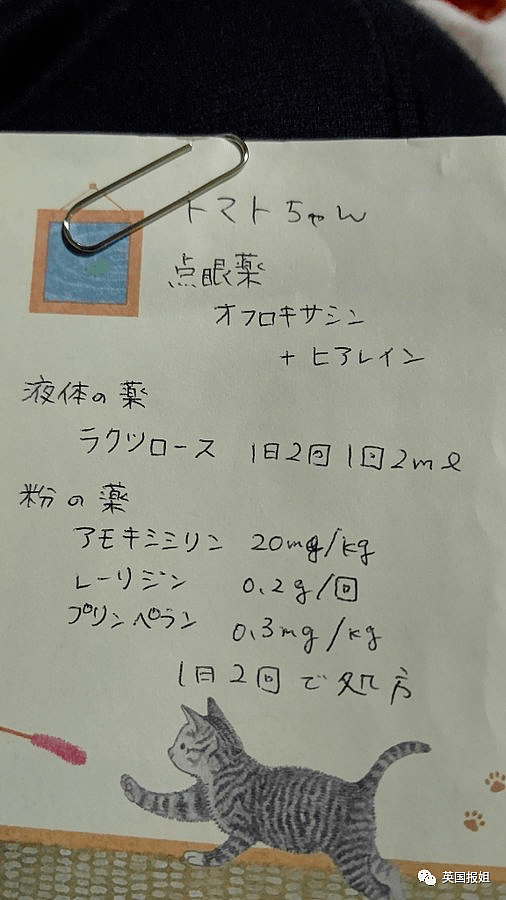 トマトちゃん
点眼薬
オフロキサシン
+ ヒアレイン
液体の薬
ラクツロース 1日2回 1回2mℓ
粉の薬
アモキシシリン 20mg/kg
L-リジン 0.2g/回
プリンペラン 0.3mg/kg
1日2回で処方
英国报姐